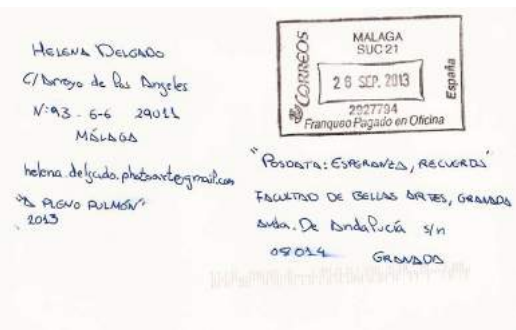 HELENA DELGADO
C/ Arroyo de los Angeles
Nº:93 - 6-6 29011
MÁLAGA
helena.delgado.photoarte@gmail.com
"A PLENO PULMÓN"
2013
CORREOS
MALAGA
SUC 21
26 SEP. 2013
2927794
Franqueo Pagado en Oficina
España
"POSDATA: ESPERANZA, RECUERDA"
FACULTAD DE BELLAS ARTES, GRANADA
Avda. De Andalucía s/n
08014
GRANADA